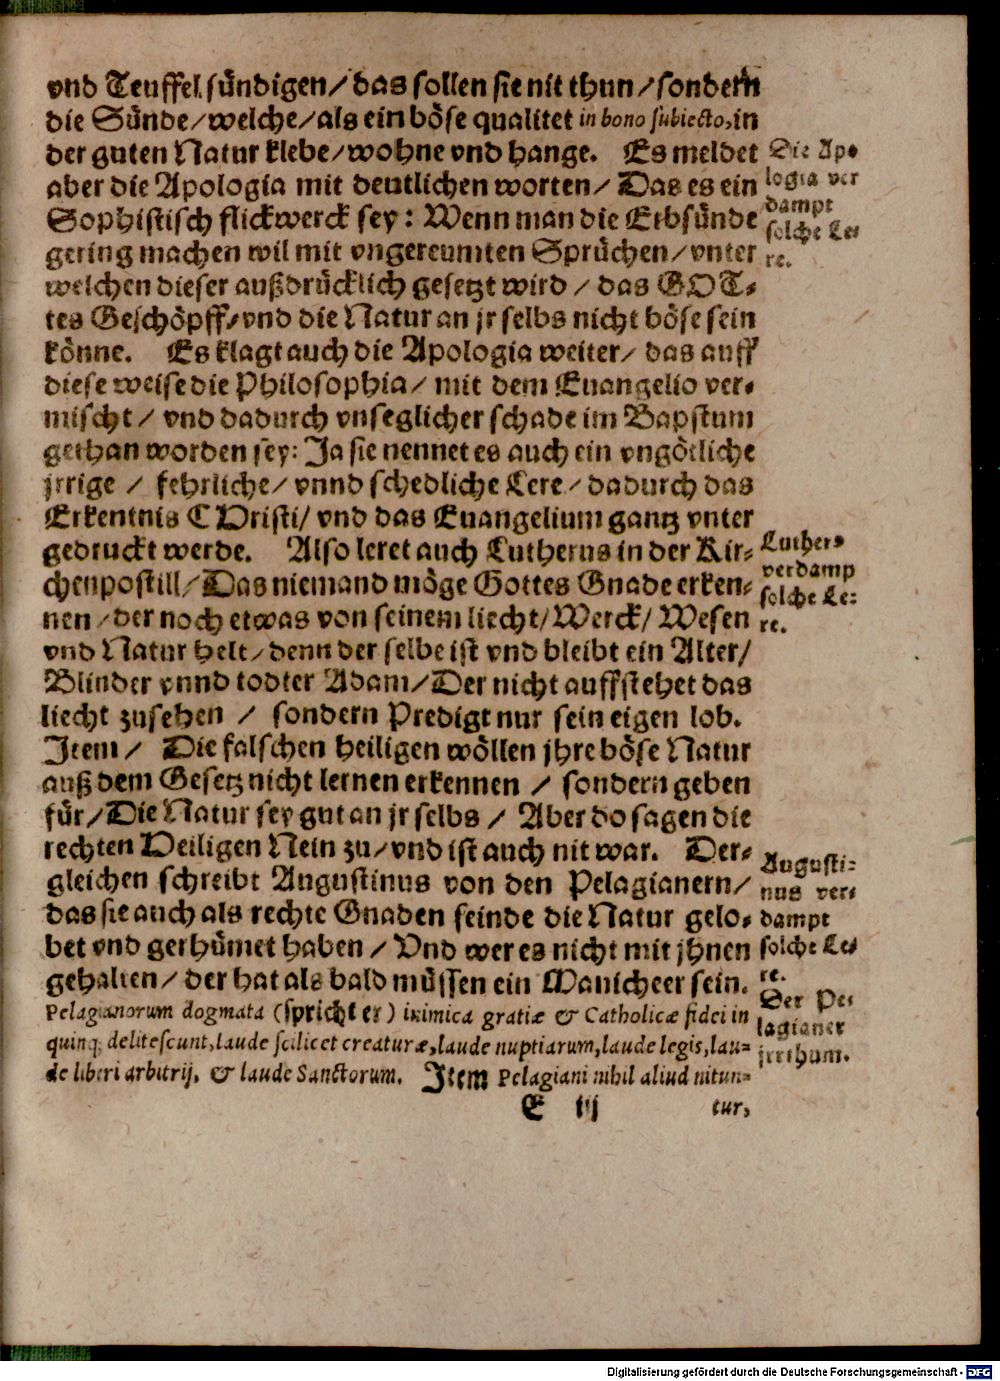 vnd Teuffel sündigen/das sollen sie nit thun/sondern
die Sünde/welche/als ein böse qualitet in bono subiecto,in
der guten Natur klebe/wohne vnd hange. Es meldet
aber die Apologia mit deutlichen worten/ Das es ein
Sophistisch flickwerck sey: Wenn man die Erbsünde
gering machen wil mit vngereumten Sprüchen/vnter
welchen dieser außdrücklich gesetzt wird / das GOT-
tes Geschöpff/vnd die Natur an jr selbs nicht böse sein
könne. Es klagt auch die Apologia weiter/ das auff
diese weise die Philosophia/ mit dem Euangelio ver-
mischt / vnd dadurch vnseglicher schade im Bapstum
gethan worden sey: Ja sie nennet es auch ein vngötliche
jrrige / fehrliche/ vnnd schedliche Lere/ dadurch das
Erkentnis CHristi/ vnd das Euangelium gantz vnter
gedruckt werde. Also leret auch Lutherus in der Kir-
chenpostill/Das niemand möge Gottes Gnade erken-
nen/der noch etwas von seinem liecht/Werck/ Wesen
vnd Natur helt/denn der selbe ist vnd bleibt ein Alter/
Blinder vnnd todter Adam/Der nicht auffstehet das
liecht zusehen / sondern Predigt nur sein eigen lob.
Jtem / Die falschen heiligen wöllen jhre böse Natur
auß dem Gesetz nicht lernen erkennen / sondern geben
für/Die Natur sey gut an jr selbs / Aber do sagen die
rechten Heiligen Nein zu/vnd ist auch nit war. Der-
gleichen schreibt Augustinus von den Pelagianern/
das sie auch als rechte Gnaden feinde die Natur gelo-
bet vnd gerhümet haben / Vnd wer es nicht mit jhnen
gehalten/ der hat als bald müssen ein Manicheer sein.
Pelagianorum dogmata (spricht er) inimica gratiæ & Catholicæ fidei in
quinq; delitescunt,laude scilicet creaturæ,laude nuptiarum,laude legis,lau-
de liberi arbitrij, & laude Sanctorum. Jtem Pelagiani nihil aliud nitun-
E iij tur,
Die Apo
logia ver
dampt
solche Le-
re.
Luther-
verdamp
solche Le-
re.
Augusti-
nus ver-
dampt
solche Le-
re.
Der Pe-
lagianer
jrrthum.
Digitalisierung gefördert durch die Deutsche Forschungsgemeinschaft - DFG